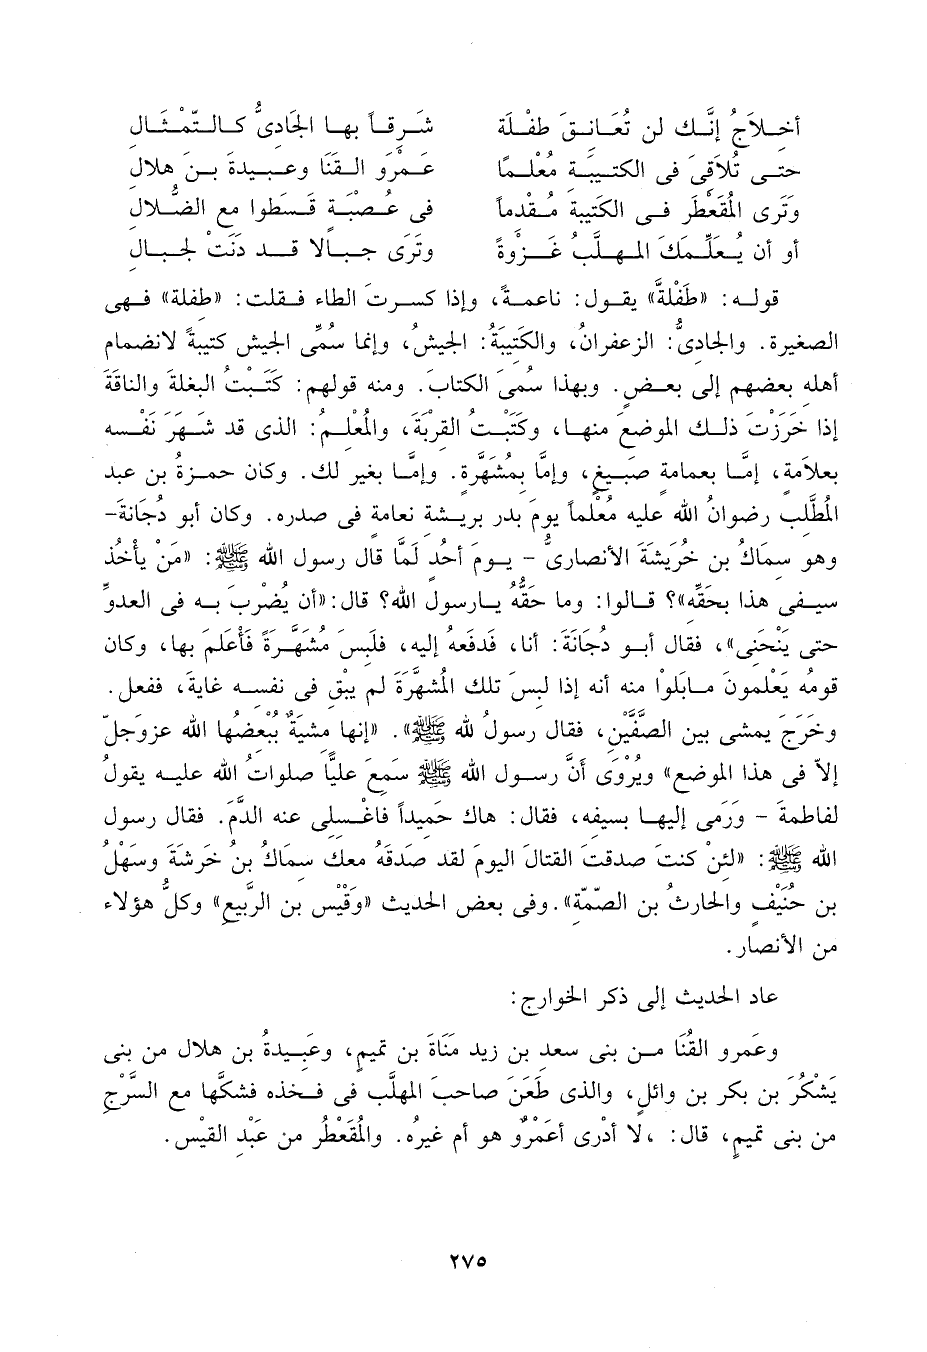 أخلاجُ إنَّك لن تُعَانقَ طفْلَة شَرِقاً بها الجَادىُّ كالتِّمْثَال
حتى تُلاَقِىَ فى الكتيبَة مُعْلمًا عَمْرَو القَنَا وعَبيدةَ بن هلال
وتَرى المُقَعْطر فى الكَتيبة مُقدماً فى عُصْبَة قَسَطوا مع الضُّلال
أو أن يُعَلِّمكَ المهلَّبُ غَزْوةً وتَرَى جبالا قد دَنَتْ لجبال
قوله: «طَفْلةً» يقول: ناعمةً، وإذا كسرتَ الطاء فقلت: «طفلة» فهى
الصغيرة. والجادىُّ: الزعفرانُ، والكَتيبَةُ: الجيشُ، وإنما سُمِّى الجيش كتيبةً لانضمام
أهله بعضهم إلى بعضٍ. وبهذا سُمىَ الكتاب. ومنه قولهم: كَتَبْتُ البغلةَ والناقةَ
إذا خَرَزْتَ ذلك الموضعَ منها، وكَتَبْتُ القرْبَةَ، والمُعْلمُ: الذى قد شَهَرَ نَفْسه
بعلامَة، إمَّا بعمامة صَبيغٍ، وإمَّا بمُشهَّرة. وإمَّا بغير لك. وكان حمزةُ بن عبد
المُطَّلب رضوانُ الله عليه مُعْلماً يومَ بدر بريشة نعامة فى صدره. وكان أبو دُجَانةَ-
وهو سماكُ بن خَرَشَةَ الأنصارىُّ - يومَ أحُدٍ لَمَّا قال رسول الله ﷺ: «مَنْ يأْخُذ
سيفى هذا بحَقِّه»؟ قالوا: وما حقُّهُ يارسول الله؟ قال:«أن يُضْربَ به فى العدوِّ
حتى يَنْحَنى»، فقال أبو دُجَانَةَ: أنا، فَدفَعهُ إليه، فلَبِسَ مُشَهَّرةً فَأعْلَم بها، وكان
قومُه يَعْلمونَ مابَلوْا منه أنه إذا لبسَ تلك المُشهَّرَةَ لم يبْق فى نفسه غايةَ، ففعل.
وخَرَجَ يمشى بين الصَّفَّيْنِ، فقال رسولُ لله ﷺ». «إنها مشْيَةٌ يُبْغضُها الله عزوجلّ
إلاَّ فى هذا الموضع» ويُرْوَى أنَّ رسول الله ﷺ سَمعَ عليَّا صلواتُ الله عليه يقولُ
لفاطمةَ - ورَمى إليها بسيفه، فقال: هاك حَميداً فاغْسلى عنه الدَّمَ. فقال رسول
الله ﷺ: «لئنْ كنتَ صدقتَ القتالَ اليومَ لقد صَدقَهُ معك سماكُ بنُ خَرشَةَ وسَهْلُ
بن حُنَيْفٍ والحارثُ بن الصِّمّة».وفى بعض الحديث «وَقَيْس بن الرَّبيعِ» وكلُّ هؤلاء
من الأنصار.
عاد الحديث إلى ذكر الخوارج:
وعَمرو القُنَا من بنى سعد بن زيد مَنَاةَ بن تميمٍ، وعَبيدةُ بن هلال من بنى
يَشْكُرَ بن بكر بن وائلٍ، والذى طَعَنَ صاحبَ المهلَّب فى فخذه فشكَّها مع السَّرْجِ
من بنى تميمٍ، قال: ،لا أدْرى أعَمْرٌو هو أم غيرُه. والمُقَعْطُر من عَبْد القيْس.
٢٧٥